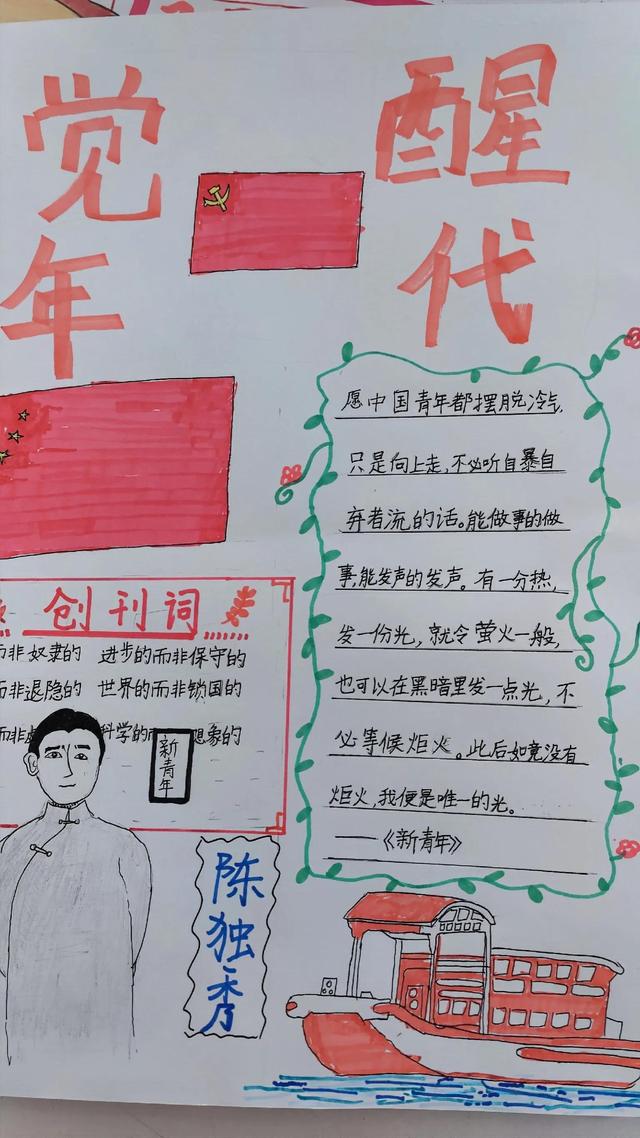 觉醒
年代
愿中国青年都摆脱冷气,
只是向上走,不必听自暴自
弃者流的话。能做事的做
事,能发声的发声。有一分热,
发一份光,就令萤火一般,
也可以在黑暗里发一点光,不
必等候炬火。此后如竟没有
炬火,我便是唯一的光。
——《新青年》
创刊词
而非奴隶的 进步的而非保守的
而非退隐的 世界的而非锁国的
而非 科学的而 想象的
新青年
陈独秀